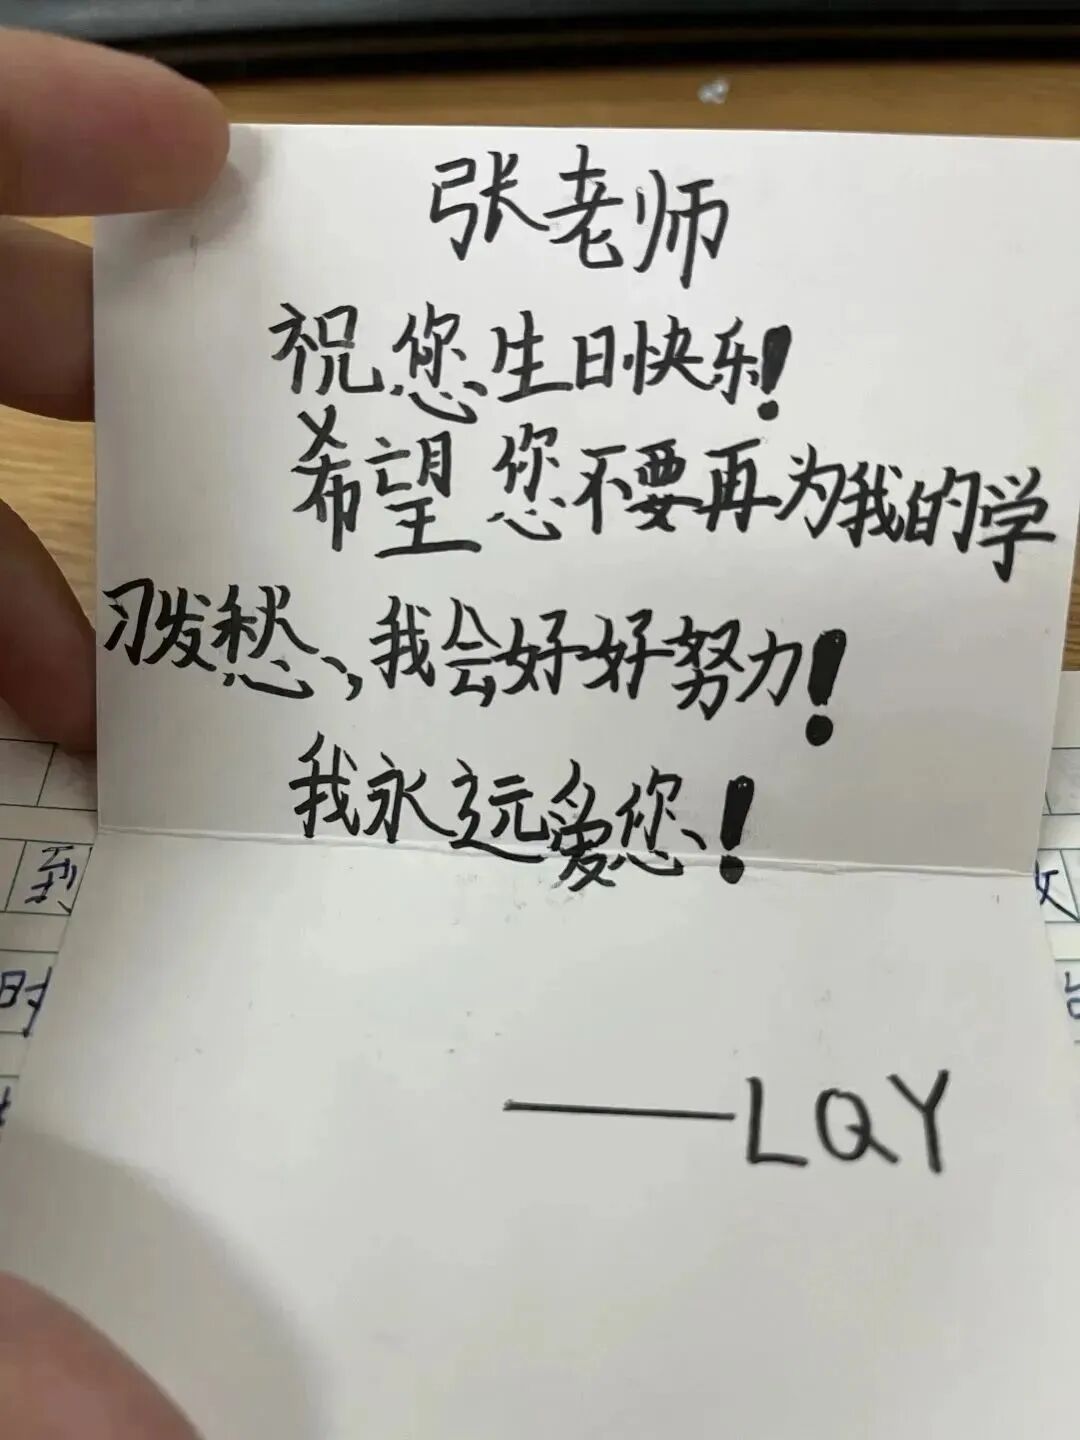 张老师
祝您生日快乐!
希望您不要再为我的学
习发愁,我会好好努力!
我永远爱您!
——LQY
时